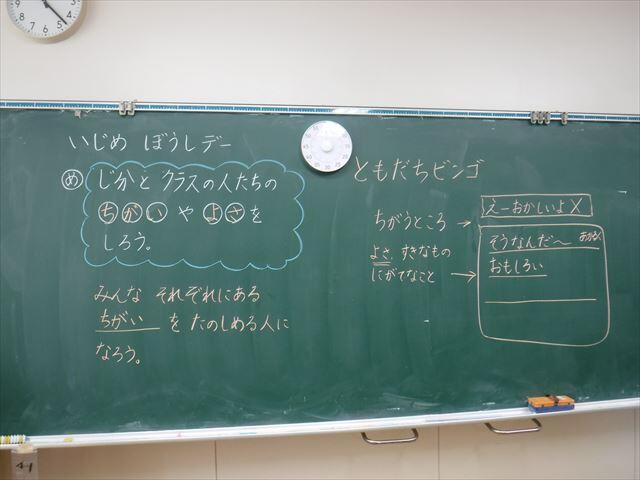 いじめ ぼうしデー
め じぶんと クラスの人たちの
ちがい や よさ を
しろう。
みんな それぞれにある
ちがい を たのしめる人に
なろう。
ともだちビンゴ
ちがうところ →
よさ、すきなもの
にがてなこと →
えーおかしいよ X
そうなんだ〜
おもしろい